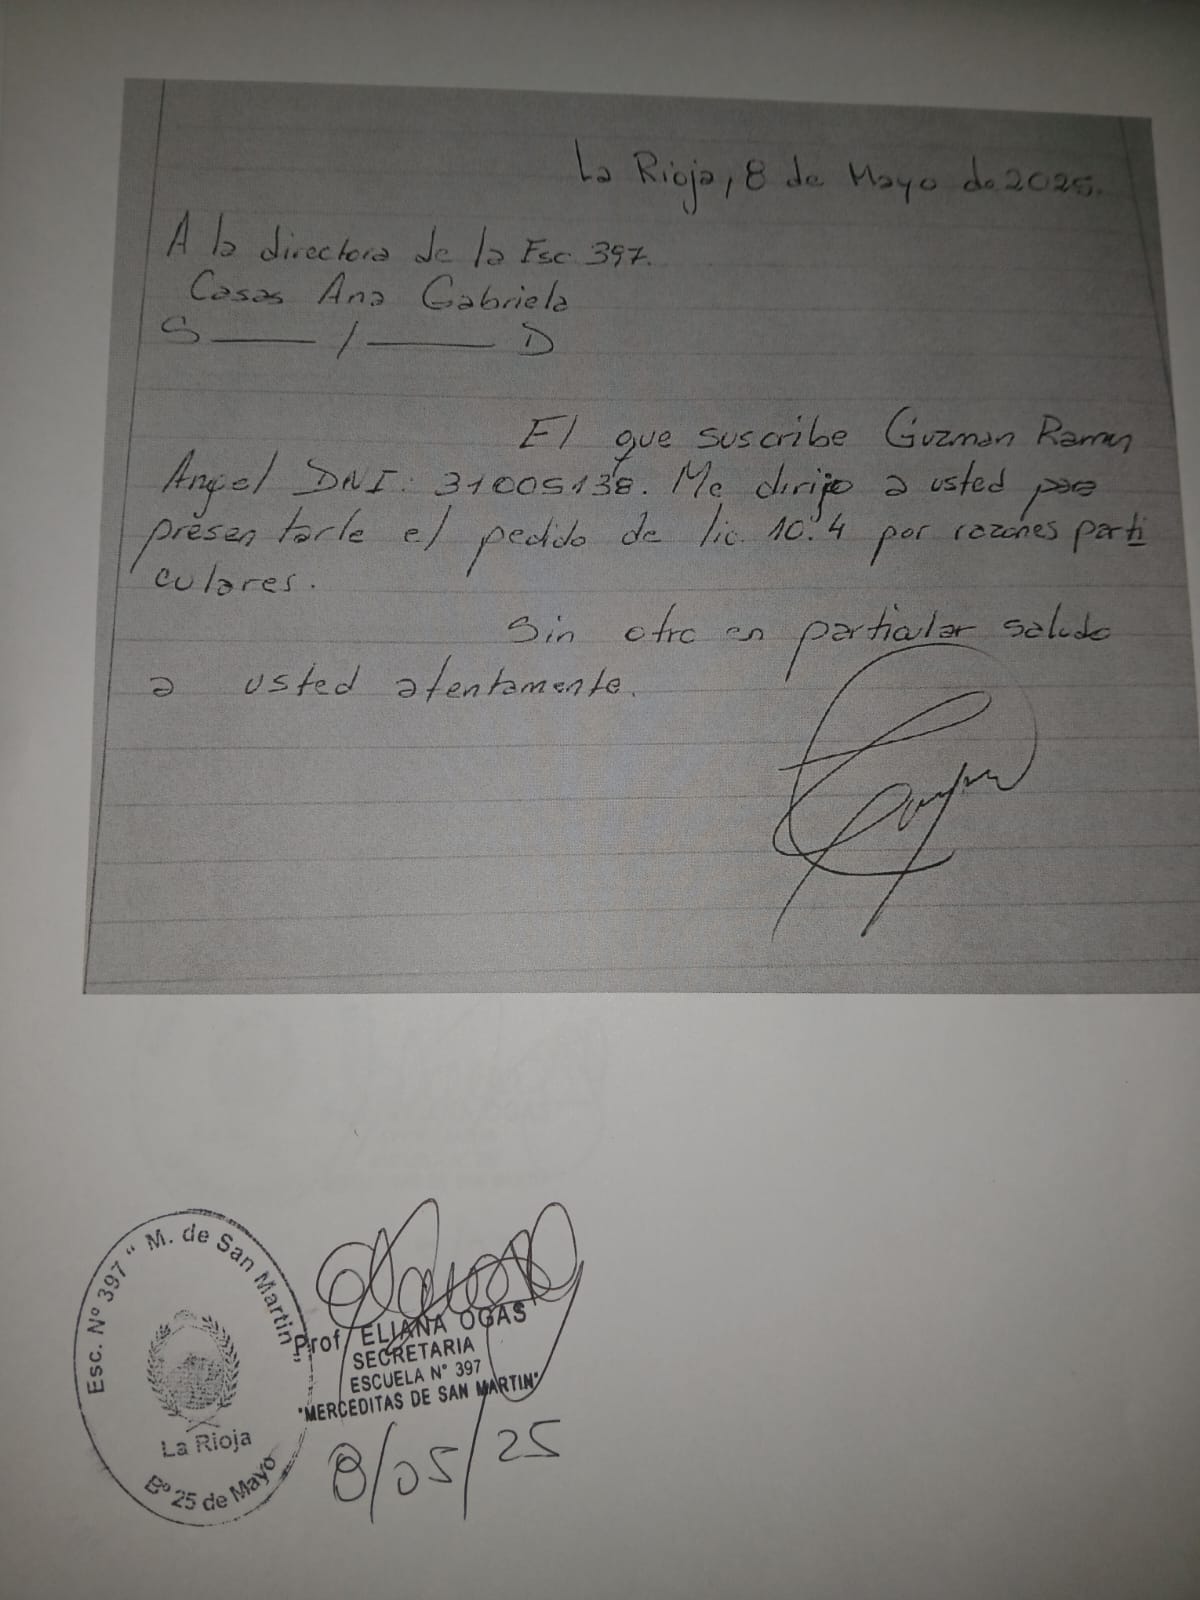 La Rioja, 8 de Mayo de 2025.
A la directora de la Esc 397.
Casas Ana Gabriela
S ___ / ___ D
El que suscribe Guzman Ramon
Angel DNI: 31005138. Me dirijo a usted para
presentarle el pedido de lic. 10.4 por razones parti
culares.
Sin otro en particular saludo
a usted atentamente.
Esc. Nº 397 " M. de San Martin "
La Rioja
Bº 25 de Mayo
Prof. ELIANA OGAS
SECRETARIA
ESCUELA N° 397
"MERCEDITAS DE SAN MARTIN"
8/05/25